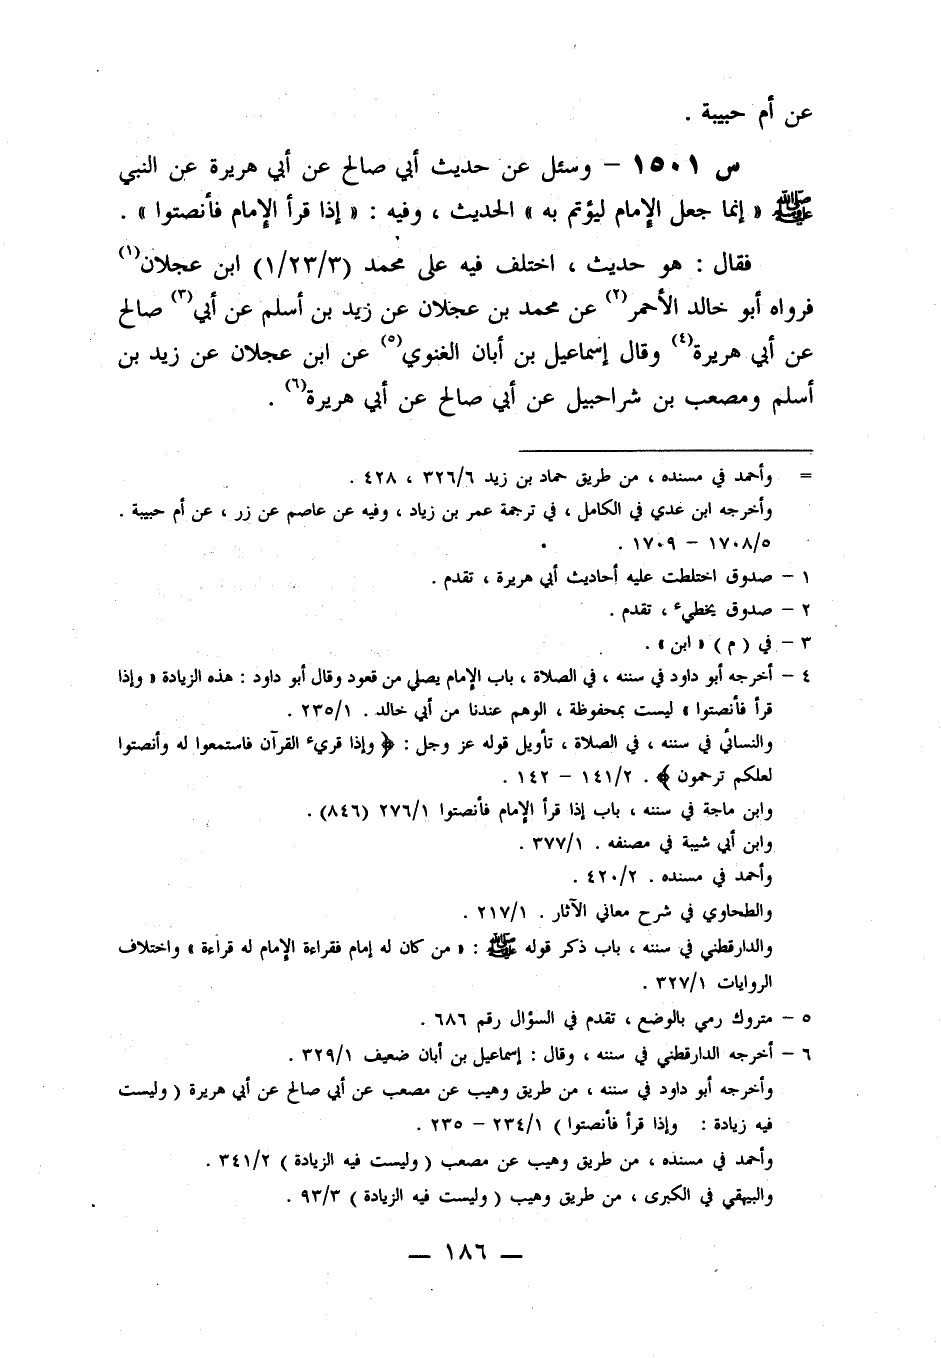 عن أم حبيبة .
س ١٥٠١ – وسئل عن حديث أبي صالح عن أبي هريرة عن النبي
ﷺ « إنما جعل الإمام ليؤتم به » الحديث ، وفيه : « إذا قرأ الإمام فأنصتوا » .
فقال : هو حديث ، اختلف فيه على محمد (١/٢٣/٣) ابن عجلان(١)
فرواه أبو خالد الأحمر(٢) عن محمد بن عجلان عن زيد بن أسلم عن أبي(٣) صالح
عن أبي هريرة(٤) وقال إسماعيل بن أبان الغنوي(٥) عن ابن عجلان عن زيد بن
أسلم ومصعب بن شراحبيل عن أبي صالح عن أبي هريرة(٦) .
= وأحمد في مسنده ، من طريق حماد بن زيد ٣٢٦/٦ ، ٤٢٨ .
وأخرجه ابن عدي في الكامل ، في ترجمة عمر بن زياد ، وفيه عن عاصم عن زر ، عن أم حبيبة .
١٧٠٨/٥ – ١٧٠٩ .
١ – صدوق اختلطت عليه أحاديث أبي هريرة ، تقدم .
٢ – صدوق يخطيء ، تقدم .
٣ – في ( م ) « ابن » .
٤ – أخرجه أبو داود في سننه ، في الصلاة ، باب الإمام يصلي من قعود وقال أبو داود : هذه الزيادة « وإذا
قرأ فأنصتوا » ليست بمحفوظة ، الوهم عندنا من أبي خالد . ٢٣٥/١ .
والنسائي في سننه ، في الصلاة ، تأويل قوله عز وجل : ﴿ وإذا قريء القرآن فاستمعوا له وأنصتوا
لعلكم ترحمون ﴾ . ١٤١/٢ – ١٤٢ .
وابن ماجة في سننه ، باب إذا قرأ الإمام فأنصتوا ٢٧٦/١ (٨٤٦) .
وابن أبي شيبة في مصنفه . ٣٧٧/١ .
وأحمد في مسنده . ٤٢٠/٢ .
والطحاوي في شرح معاني الآثار . ٢١٧/١ .
والدارقطني في سننه ، باب ذكر قوله ﷺ : « من كان له إمام فقراءة الإمام له قراءة » واختلاف
الروايات ٣٢٧/١ .
٥ – متروك رمي بالوضع ، تقدم في السؤال رقم ٦٨٦ .
٦ – أخرجه الدارقطني في سننه ، وقال : إسماعيل بن أبان ضعيف ٣٢٩/١ .
وأخرجه أبو داود في سننه ، من طريق وهيب عن مصعب عن أبي صالح عن أبي هريرة ( وليست
فيه زيادة : وإذا قرأ فأنصتوا ) ٢٣٤/١ – ٢٣٥ .
وأحمد في مسنده ، من طريق وهيب عن مصعب ( وليست فيه الزيادة ) ٣٤١/٢ .
والبيهقي في الكبرى ، من طريق وهيب ( وليست فيه الزيادة ) ٩٣/٣ .
— ١٨٦ —